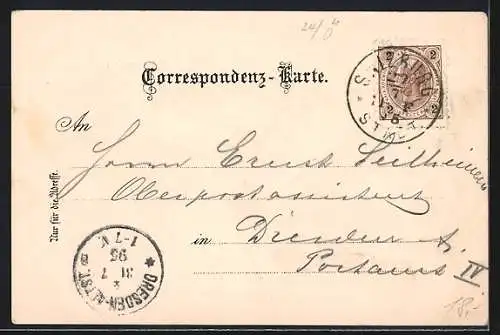 24/ö
Correspondenz-Karte.
2 2
SALZBURG
STADT
An
Herrn Ernst Seilheimer
Oberpostassistent
in Dresden A.
Postamt IV.
Nur für die Adresse.
DRESDEN-ALTST.
31 7
95
1-7 N.
18,-